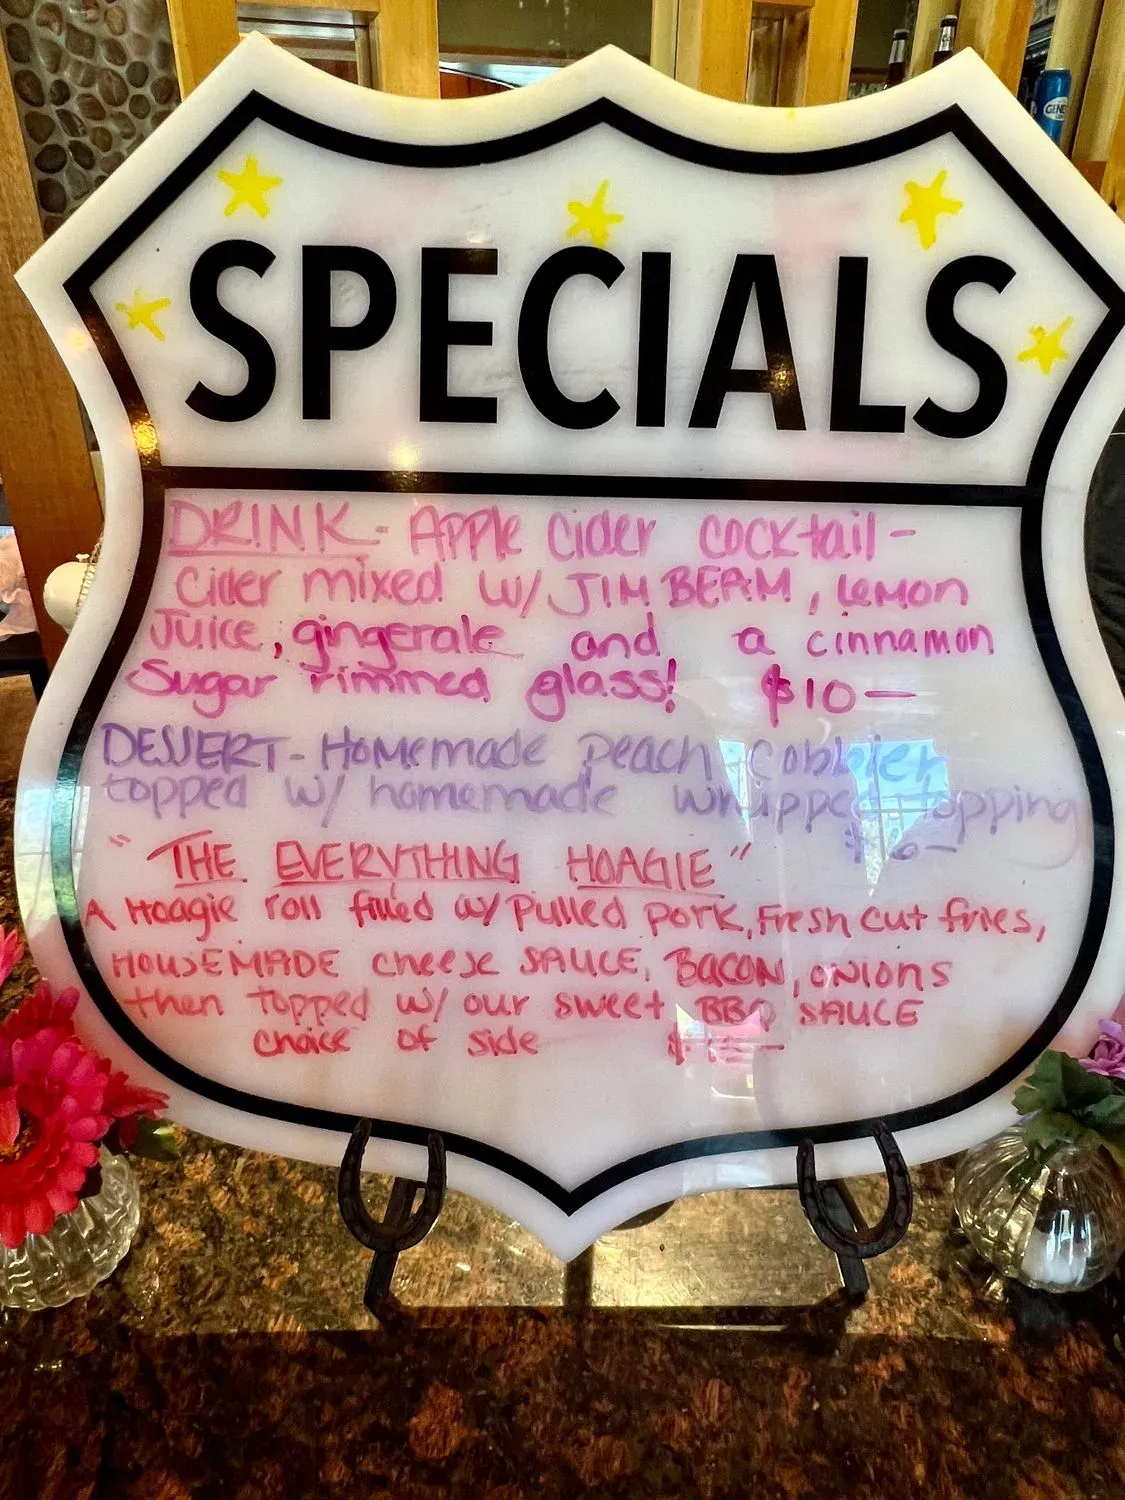 SPECIALS
DRINK - Apple Cider cocktail -
Cider mixed w/ JIM BEAM, Lemon
Juice, gingerale and a cinnamon
Sugar rimmed glass! $10—
DESSERT - Homemade peach cobbler
topped w/ homemade whipped topping
"THE EVERYTHING HOAGIE"
A Hoagie roll filled w/ Pulled pork, Fresh cut fries,
HOUSEMADE cheese SAUCE, BACON, onions
then topped w/ our sweet BBQ SAUCE
choice of side